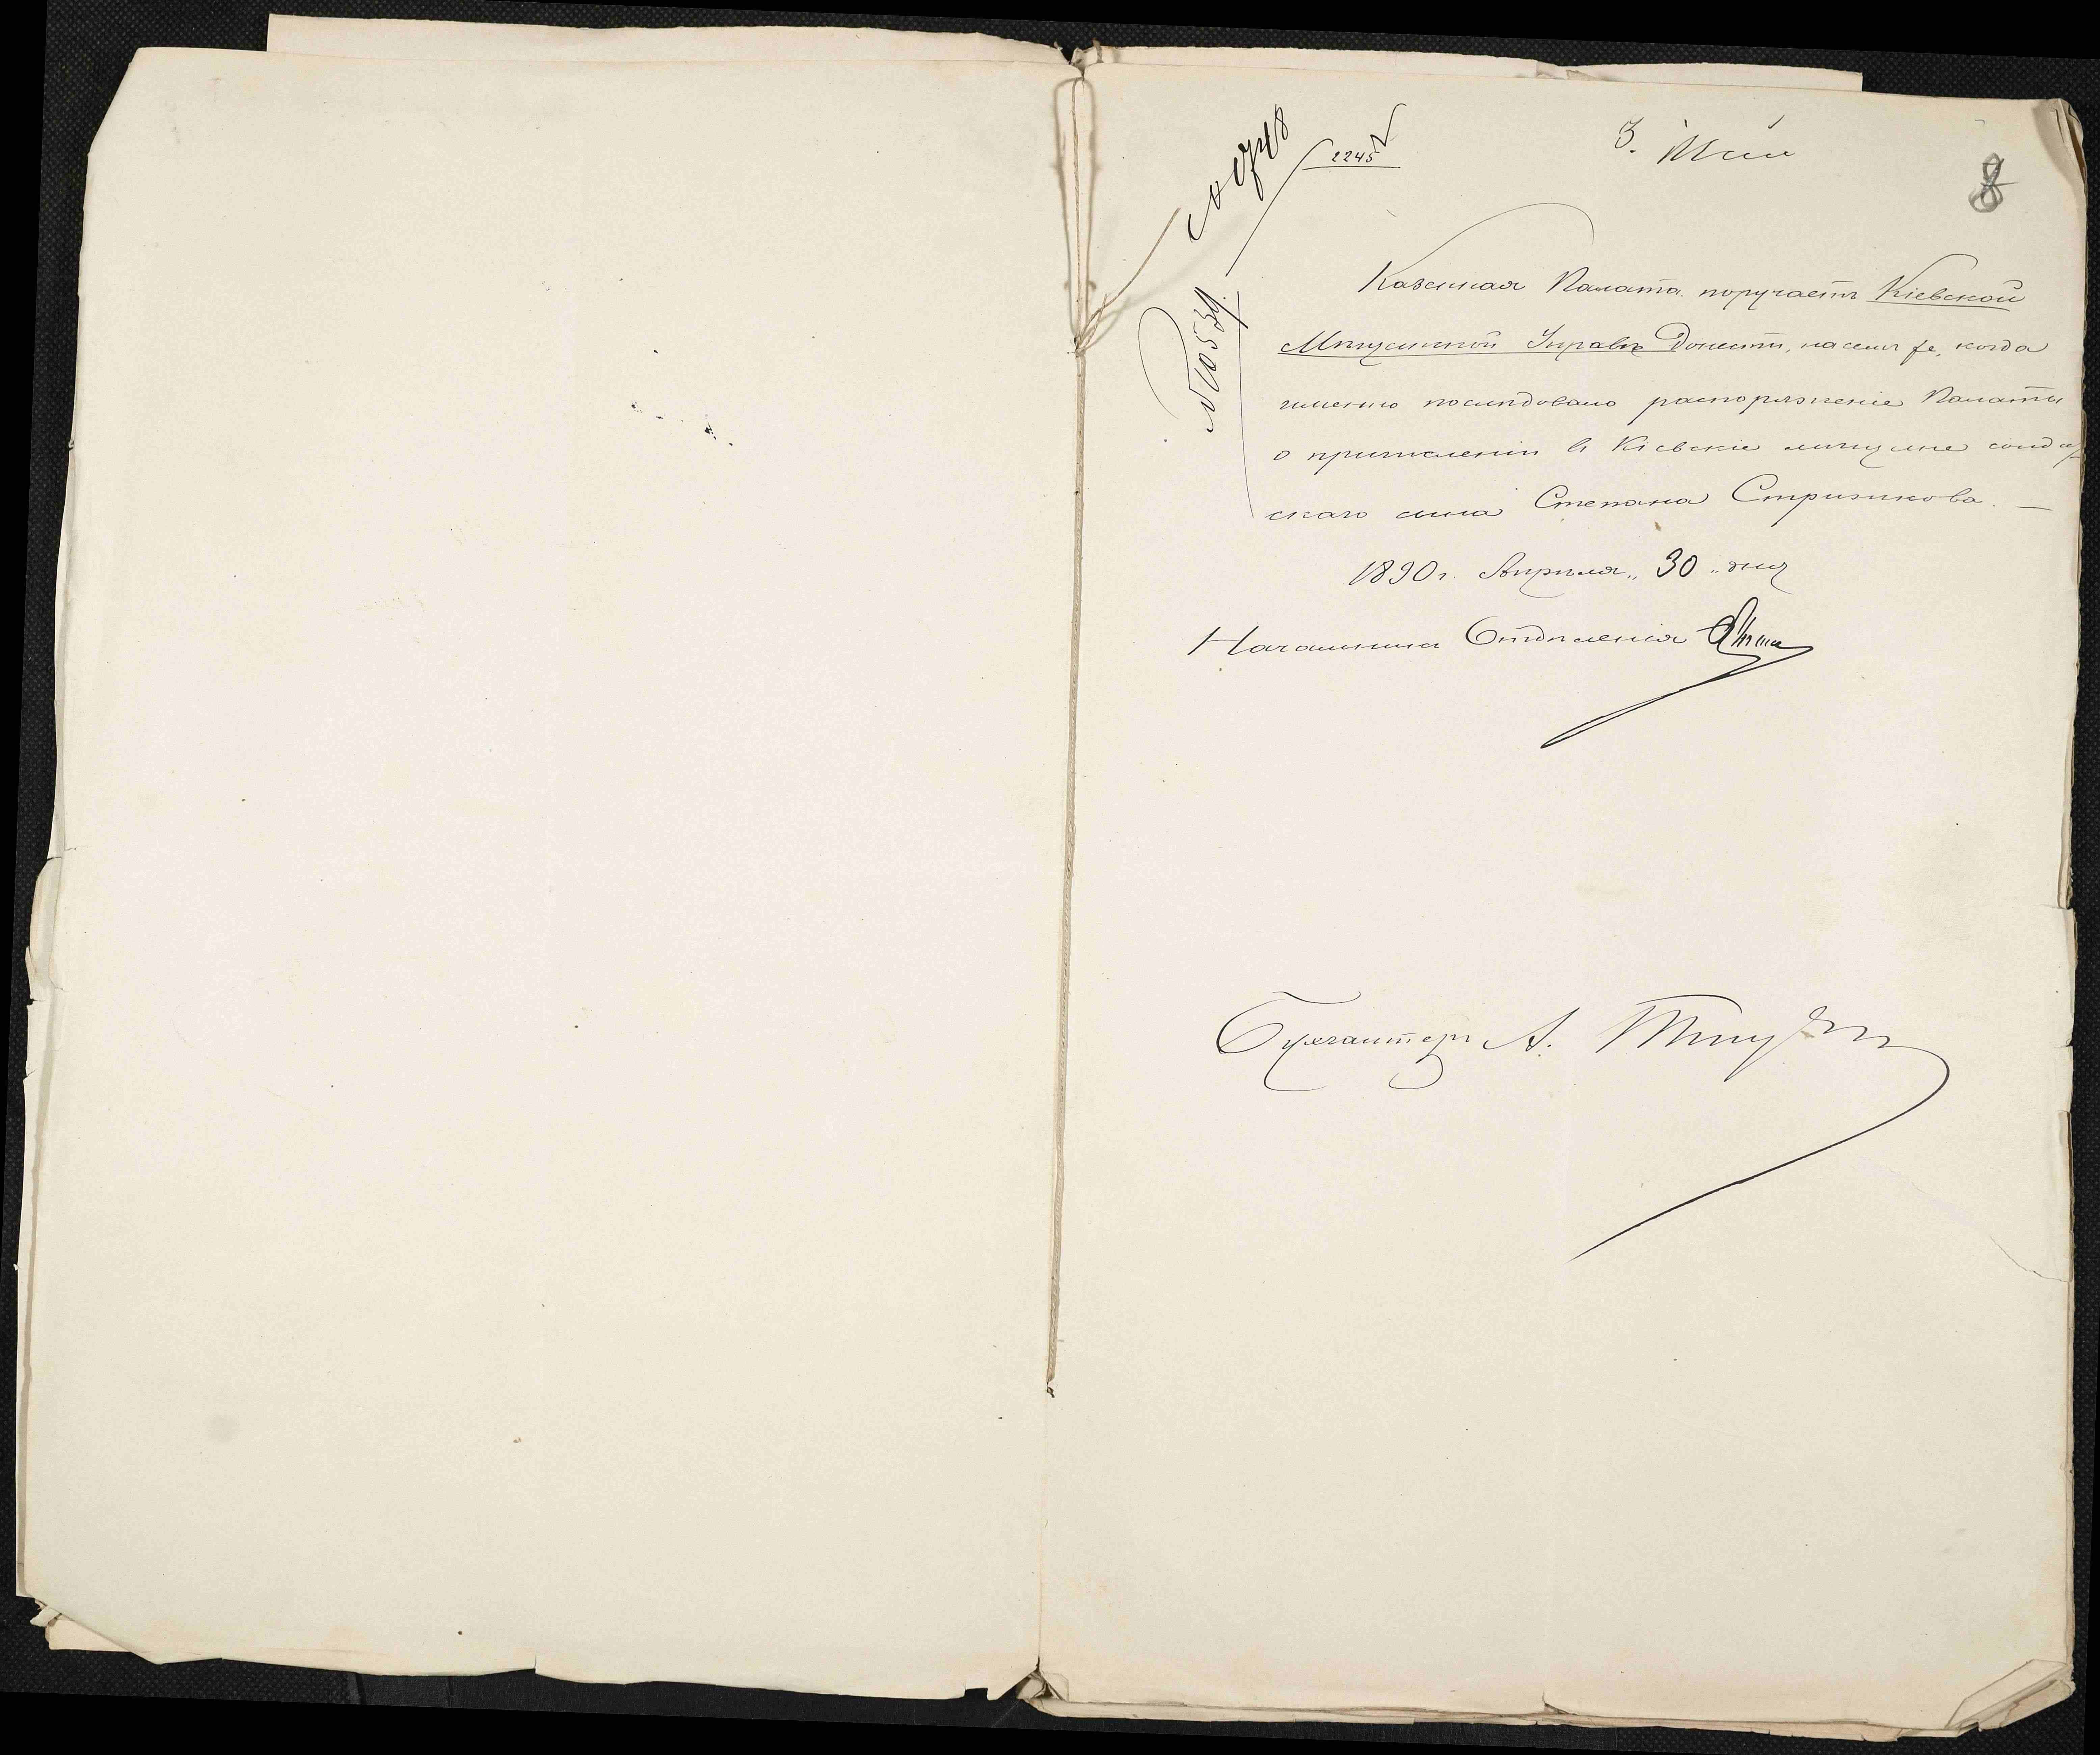 3. Мая
8
2245
№ 10539.
Казенная Палата поручаетъ Кіевской
Мѣщанской Управѣ Донести, на семъ же, когда
именно послѣдовало распоряженіе Палаты
о причисленіи въ Кіевскіе мѣщане солдат
скаго сына Степана Стрижикова. —
1890 г. Апрѣля „30„ дня
Начальникъ Отдѣленія
Бухгалтеръ А.